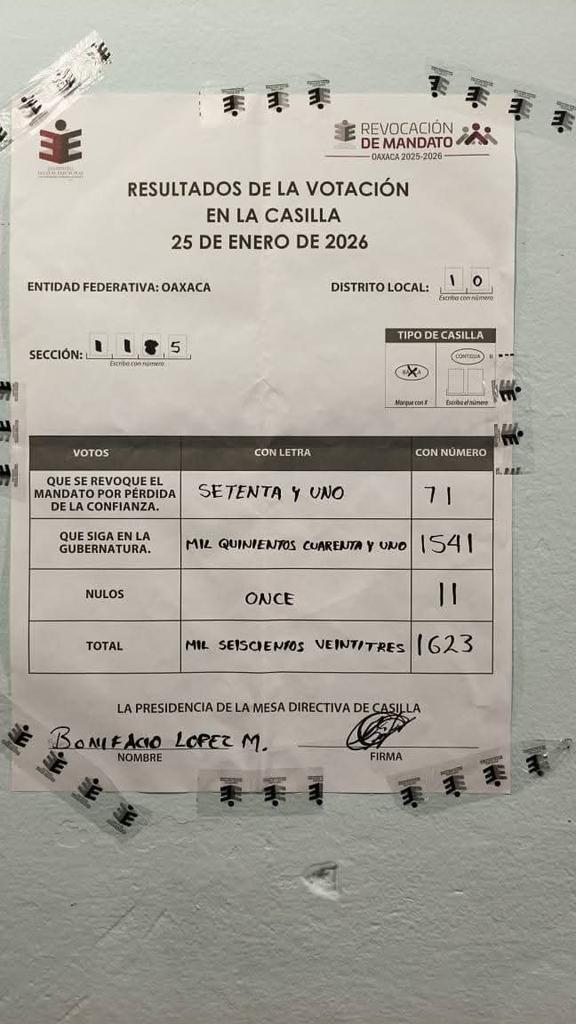 REVOCACIÓN
DE MANDATO
OAXACA 2025-2026
RESULTADOS DE LA VOTACIÓN
EN LA CASILLA
25 DE ENERO DE 2026
ENTIDAD FEDERATIVA: OAXACA
DISTRITO LOCAL: 10
Escriba con número
SECCIÓN: 1185
Escriba con número
TIPO DE CASILLA
CONTIGUA
Marque con X
Escriba el número
VOTOS CON LETRA CON NÚMERO
QUE SE REVOQUE EL
MANDATO POR PÉRDIDA
DE LA CONFIANZA.
SETENTA Y UNO 71
QUE SIGA EN LA
GUBERNATURA.
MIL QUINIENTOS CUARENTA Y UNO 1541
NULOS ONCE 11
TOTAL MIL SEISCIENTOS VEINTITRES 1623
LA PRESIDENCIA DE LA MESA DIRECTIVA DE CASILLA
BONIFACIO LOPEZ M.
NOMBRE FIRMA